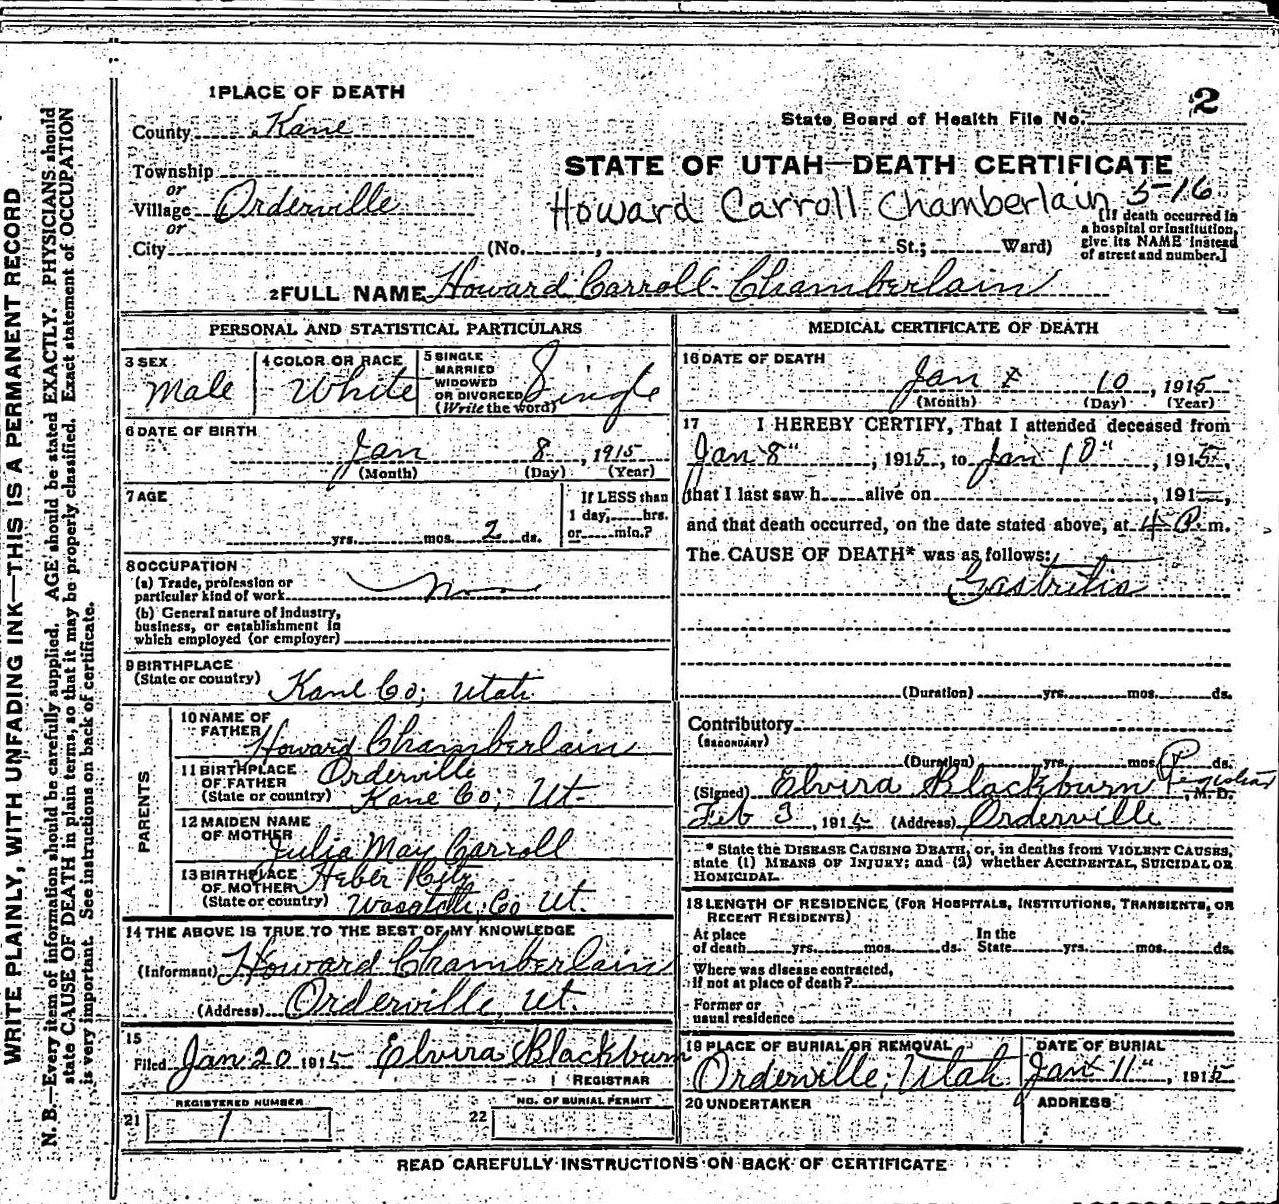 1 PLACE OF DEATH
County Kane
State Board of Health File No. 2
Township
or
Village Orderville
or
City (No. , St.; Ward)
STATE OF UTAH—DEATH CERTIFICATE
Howard Carroll Chamberlain 5-16
[If death occurred in
a hospital or institution,
give its NAME instead
of street and number.]
2 FULL NAME Howard Carroll Chamberlain
PERSONAL AND STATISTICAL PARTICULARS
3 SEX
Male
4 COLOR OR RACE
White
5 SINGLE
MARRIED
WIDOWED
OR DIVORCED
(Write the word)
Single
6 DATE OF BIRTH
Jan 8, 1915
(Month) (Day) (Year)
7 AGE
yrs. mos. 2 ds.
If LESS than
1 day, hrs.
or min.?
8 OCCUPATION
(a) Trade, profession or
particular kind of work
(b) General nature of industry,
business, or establishment in
which employed (or employer)
9 BIRTHPLACE
(State or country) Kane Co; Utah
PARENTS
10 NAME OF
FATHER
Howard Chamberlain
11 BIRTHPLACE
OF FATHER
(State or country)
Orderville
Kane Co; Ut.
12 MAIDEN NAME
OF MOTHER
Julia May Carroll
13 BIRTHPLACE
OF MOTHER
(State or country)
Heber City
Wasatch Co Ut.
14 THE ABOVE IS TRUE TO THE BEST OF MY KNOWLEDGE
(Informant) Howard Chamberlain
(Address) Orderville, Ut.
15
Filed Jan 20 1915 Elvira Blackburn
REGISTRAR
21 REGISTERED NUMBER
1
22 NO. OF BURIAL PERMIT
MEDICAL CERTIFICATE OF DEATH
16 DATE OF DEATH
Jan 10, 1915
(Month) (Day) (Year)
17 I HEREBY CERTIFY, That I attended deceased from
Jan 8", 1915, to Jan 10", 1915,
that I last saw h alive on , 191 ,
and that death occurred, on the date stated above, at 4 P. m.
The CAUSE OF DEATH* was as follows:
Gastritis
(Duration) yrs. mos. ds.
Contributory
(SECONDARY)
(Duration) yrs. mos. ds.
(Signed) Elvira Blackburn Registrar, M. D.
Feb 3, 1915 (Address) Orderville
* State the DISEASE CAUSING DEATH, or, in deaths from VIOLENT CAUSES,
state (1) MEANS OF INJURY; and (2) whether ACCIDENTAL, SUICIDAL OR
HOMICIDAL.
18 LENGTH OF RESIDENCE (FOR HOSPITALS, INSTITUTIONS, TRANSIENTS, OR
RECENT RESIDENTS)
At place
of death yrs. mos. ds.
In the
State yrs. mos. ds.
Where was disease contracted,
If not at place of death?
Former or
usual residence
19 PLACE OF BURIAL OR REMOVAL
Orderville, Utah
DATE OF BURIAL
Jan 11", 1915
20 UNDERTAKER
ADDRESS
READ CAREFULLY INSTRUCTIONS ON BACK OF CERTIFICATE
WRITE PLAINLY, WITH UNFADING INK—THIS IS A PERMANENT RECORD
N. B.—Every item of information should be carefully supplied. AGE should be stated EXACTLY. PHYSICIANS should
state CAUSE OF DEATH in plain terms, so that it may be properly classified. Exact statement of OCCUPATION
is very important. See instructions on back of certificate.